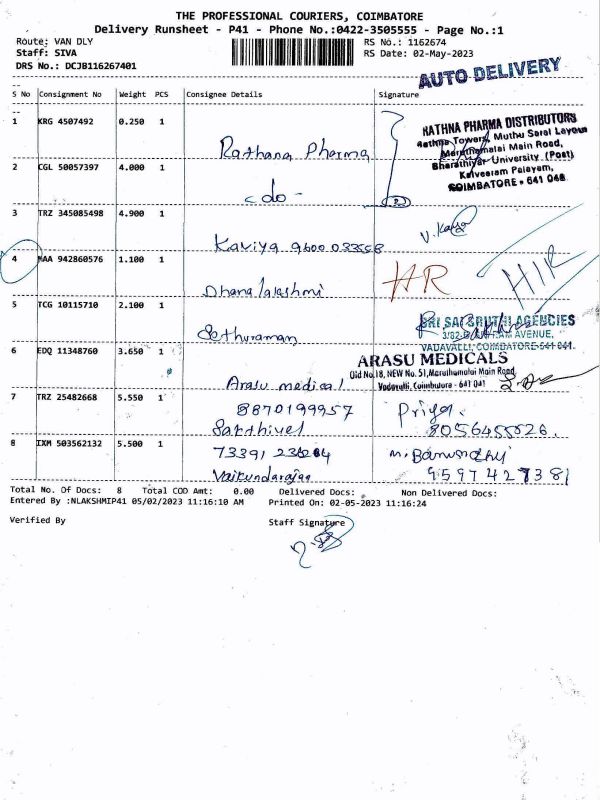 THE PROFESSIONAL COURIERS, COIMBATORE
Delivery Runsheet - P41 - Phone No.:0422-3505555 - Page No.:1
Route: VAN DLY
RS No.: 1162674
Staff: SIVA
RS Date: 02-May-2023
DRS No.: DCJB116267401
AUTO DELIVERY
S No Consignment No Weight PCS Consignee Details Signature
1 KRG 4507492 0.250 1
Rathana Pharma
RATHNA PHARMA DISTRIBUTORS
Rathna Towers, Muthu Sarai Layout
Maruthamalai Main Road,
Bharathiyar University (Post)
Kalveeram Palayam,
COIMBATORE - 641 046.
2 CGL 50057397 4.000 1
-do-
3 TRZ 345085498 4.900 1
Kaviya 9600033558
4 MAA 942860576 1.100 1
Dhanalakshmi
HR
H/R
5 TCG 10115710 2.100 1
Sethuraman
SRI SAI SRUTHI AGENCIES
AVENUE,
VADAVALLI, COIMBATORE-641 041.
6 EDQ 11348760 3.650 1
Arasu medical
ARASU MEDICALS
Old No.18, NEW No. 51, Maruthamalai Main Road,
Vadavalli, Coimbatore - 641 041
7 TRZ 25482668 5.550 1
8870199957
Sakthivel
Priya.
8056455526.
8 IXM 503562132 5.500 1
Vaikundarajan
9597427381
Total No. Of Docs: 8 Total COD Amt: 0.00 Delivered Docs: Non Delivered Docs:
Entered By :NLAKSHMIP41 05/02/2023 11:16:10 AM Printed On: 02-05-2023 11:16:24
Verified By Staff Signature